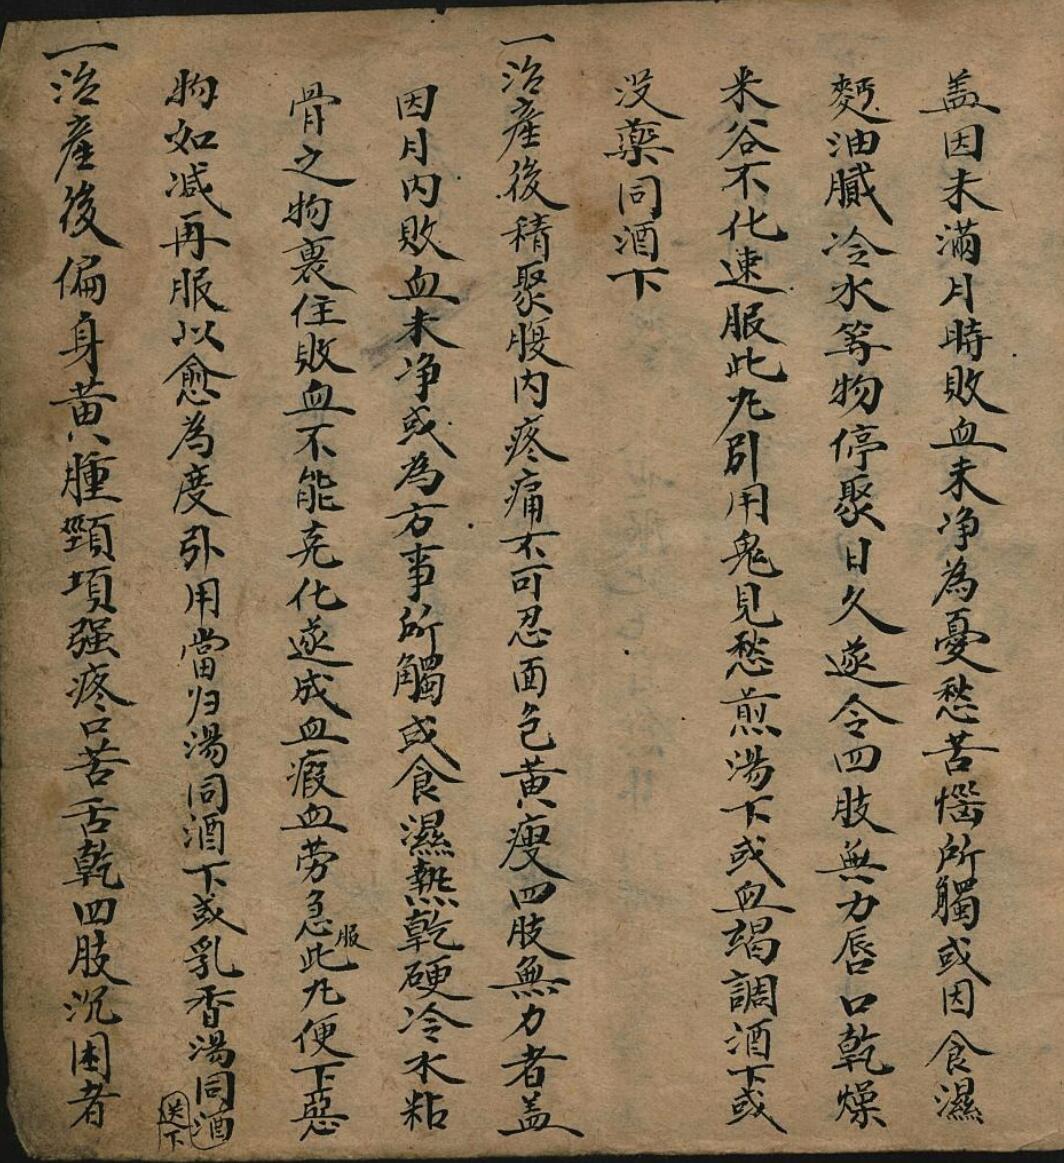 盖因未滿月時敗血未净為憂愁苦惱所觸或因食濕
麪油膩冷水等物停聚日久遂令四肢無力唇口乾燥
米谷不化速服此丸引用鬼見愁煎湯下或血竭調酒下或
没藥同酒下
一治產後積聚腹内疼痛不可忍面色黄瘦四肢無力者盖
因月内敗血未净或為方事所觸或食濕熱乾硬冷水粘
骨之物裹住敗血不能克化遂成血瘕血劳急服此丸便下惡
物如减再服以愈為度引用當归湯同酒下或乳香湯同酒送下
一治產後偏身黄腫頸項强疼口苦舌乾四肢沉困者